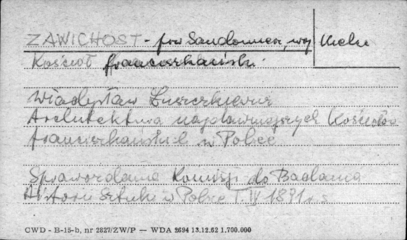 ZAWICHOST - pow Sandomierz, woj Kielce
Kościół franciszkański.
Władysław Łuszczkiewicz
Architektura najdawniejszych Kościołów
franciszkańskich w Polsce
Sprawozdania Komisji do Badania
Historii Sztuki w Polsce T. IV 1891 r.
CWD - B-15-b, nr 2827/ZW/P — WDA 2694 13.12.62 1.700.000